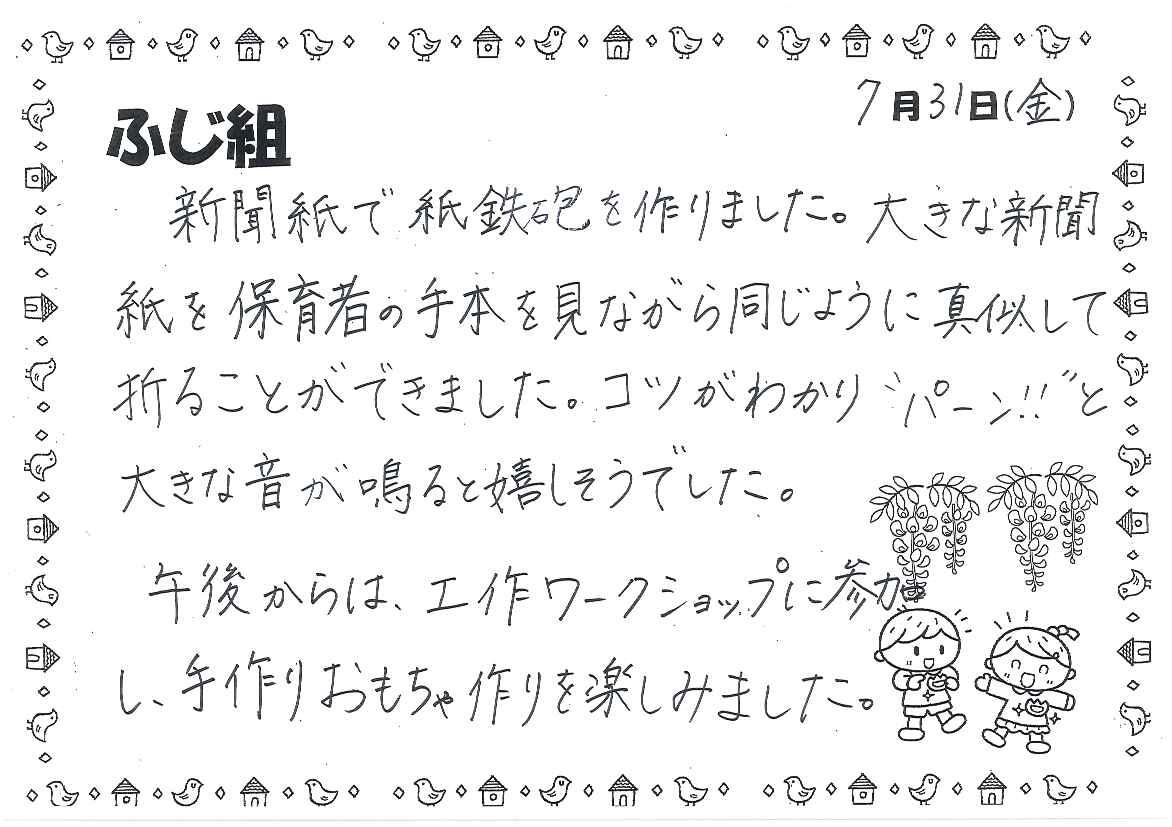 7月31日(金)
ふじ組
新聞紙で紙鉄砲を作りました。大きな新聞
紙を保育者の手本を見ながら同じように真似して
折ることができました。コツがわかり“パーン!!”と
大きな音が鳴ると嬉しそうでした。
午後からは、工作ワークショップに参加
し、手作りおもちゃ作りを楽しみました。